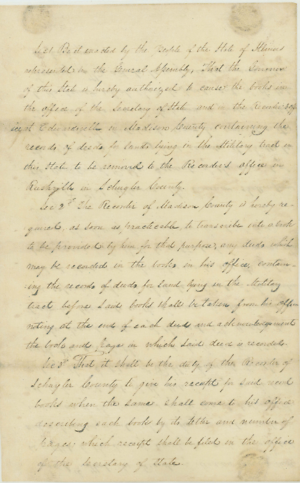 Sec 1. Be it enacted by the People of the State of Illinois
represented in the General Assembly, That the Governor
of this State is hereby authorized to cause the books in
the office of the Secretary of State and in the Recorder's of
fice at Edwardsville in Madison County containing the
records of deeds for lands lying in the Military tract in
this State to be removed to the Recorder's office in
Rushville in Schuyler County.
Sec 2d The Recorder of Madison County is hereby re
quired, as soon as practicable to transcribe into a book
to be procured by him for that purpose, any deeds which
may be recorded in the books in his office, contain
ing the records of deeds for land lying in the Military
tract before said books shall be taken from his office
noting at the end of each deed and acknowledgement
the book and page in which said deed is recorded.
Sec 3d That it shall be the duty of the Recorder of
Schuyler County to give his receipt for said record
books when the same shall come to his office
describing such books by the letter and number of
pages; which receipt shall be filed in the office
of the Secretary of State.